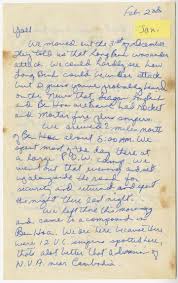 Feb. 2nd
Jan.
We moved out the 3rd
they told us that Long Binh was under
attack. We could hardly see how
Long Binh could be under attack
but I guess you've probably heard
on the news that Saigon,
and Ben Hoa are being hit Rocket
and Mortar fire plus snipers.
We arrived 2 miles north
of Ben Hoa about 5:00 AM. We
spent most of the day there at
a large P.O.W. camp. We
went out that evening and set
up along side the road for
security and returned and spent
the night there last night.
We left there this morning
and came to a compound in
Ben Hoa. We are here because there
were 12 V.C. snipers spotted here,
thats alot better than a division of
N.V.A. near Cambodia